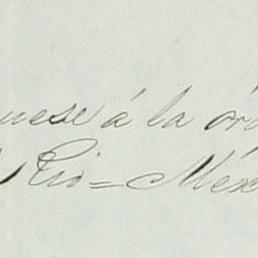 uese á la ór
Rio = Méx